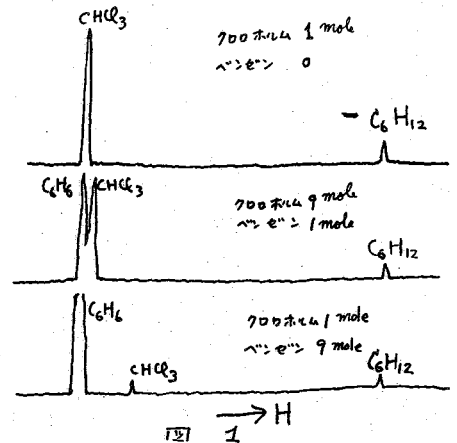 CHCl₃
クロロホルム 1 mole
ベンゼン 0
C₆H₁₂
C₆H₆ CHCl₃
クロロホルム 9 mole
ベンゼン 1 mole
C₆H₁₂
C₆H₆
クロロホルム 1 mole
ベンゼン 9 mole
CHCl₃
C₆H₁₂
→ H
図 1